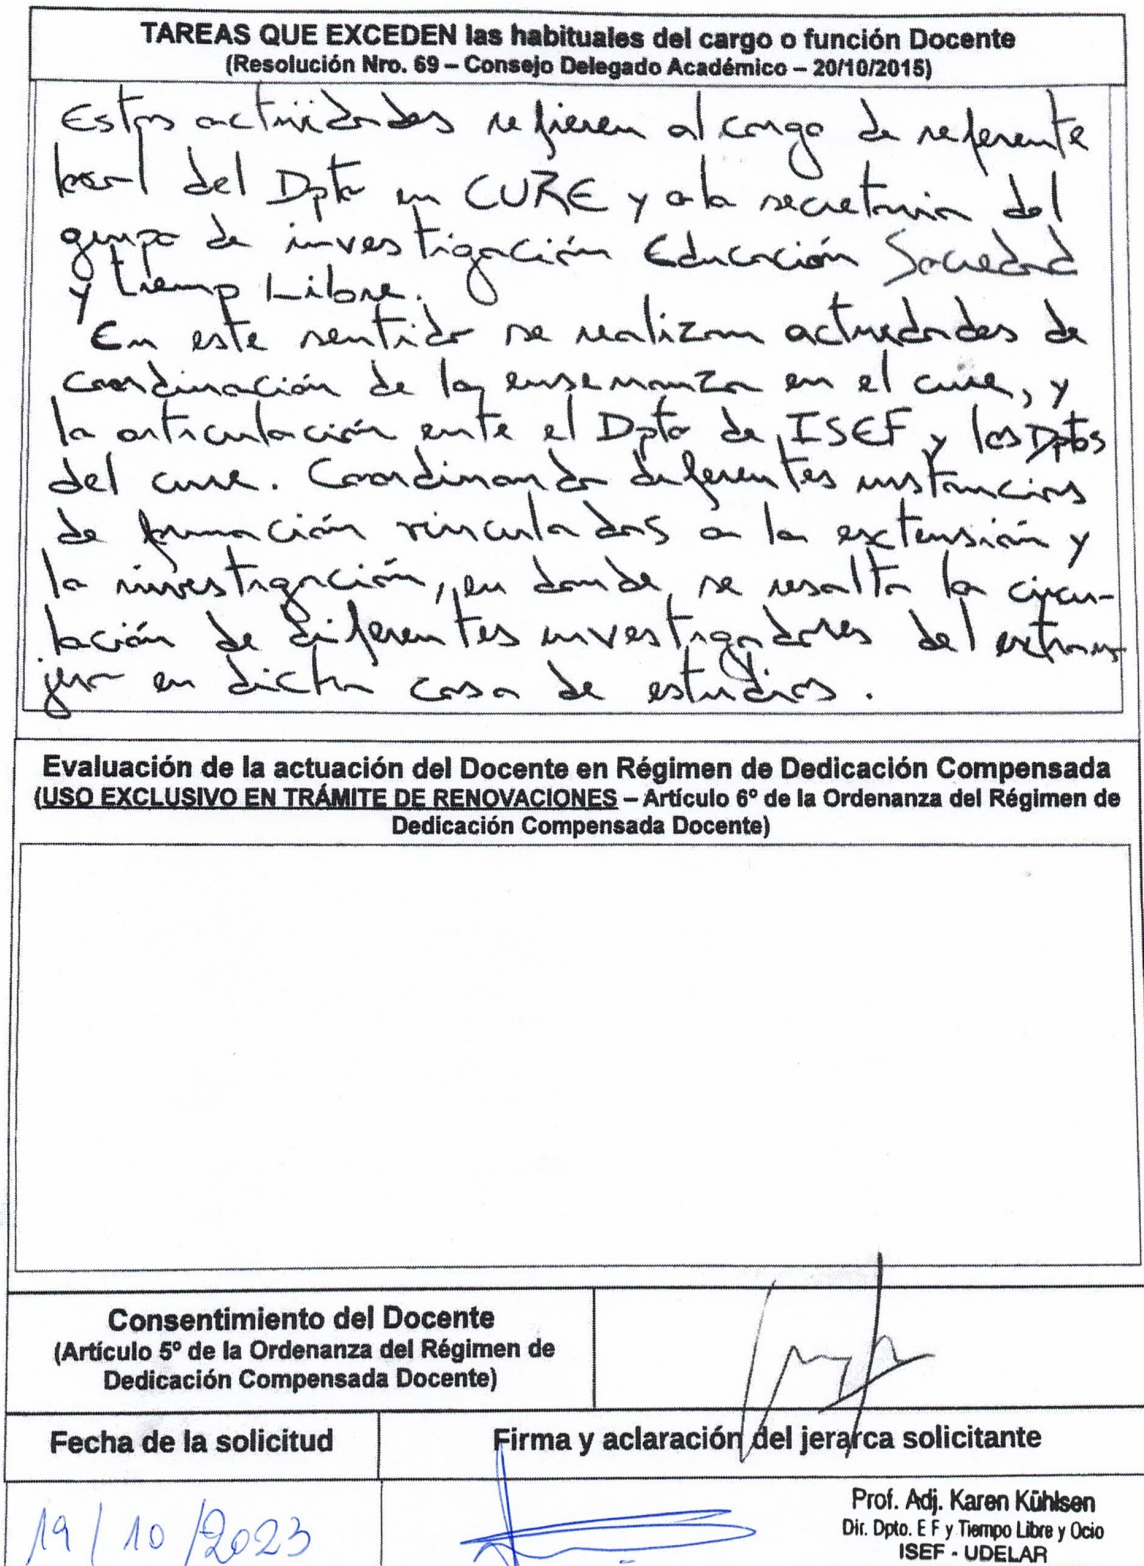 TAREAS QUE EXCEDEN las habituales del cargo o función Docente
(Resolución Nro. 69 – Consejo Delegado Académico – 20/10/2015)
Estas actividades refieren al cargo de referente
local del Dpto en CURE y a la secretaria del
grupo de investigación Educación Sociedad
y tiemp Libre.
En este sentido se realizan actividades de
coordinación de la enseñanza en el cure, y
la articulación ente el Dpto de ISEF y los Dptos
del cure. Coordinando diferentes instancias
de formación vinculadas a la extensión y
la investigación, en donde se resalta la circu-
lación de diferentes investigadores del extran-
jero en dicha casa de estudios.
Evaluación de la actuación del Docente en Régimen de Dedicación Compensada
(USO EXCLUSIVO EN TRÁMITE DE RENOVACIONES – Artículo 6º de la Ordenanza del Régimen de
Dedicación Compensada Docente)
Consentimiento del Docente
(Artículo 5º de la Ordenanza del Régimen de
Dedicación Compensada Docente)
Fecha de la solicitud
Firma y aclaración del jerarca solicitante
19 / 10 / 2023
Prof. Adj. Karen Kühlsen
Dir. Dpto. E F y Tiempo Libre y Ocio
ISEF - UDELAR